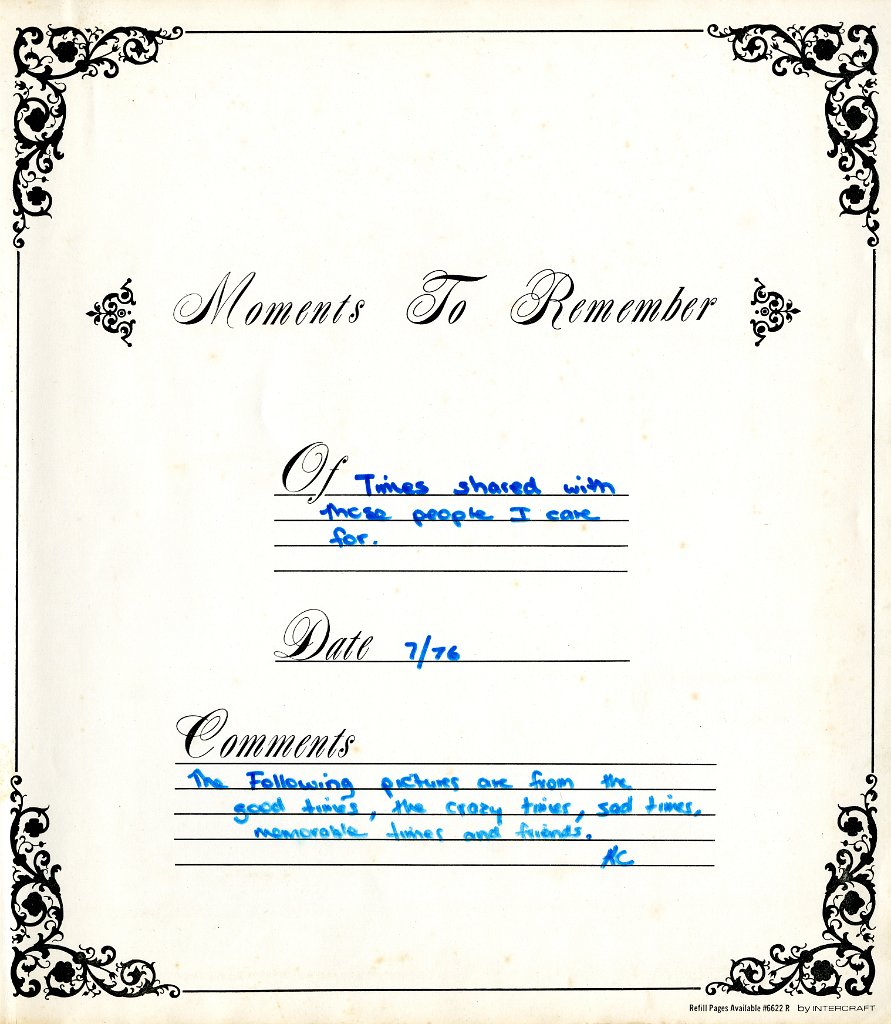 Moments To Remember
Of Times shared with
these people I care
for.
Date 7/76
Comments
The Following pictures are from the
good times, the crazy times, sad times,
memorable times and friends.
KC
Refill Pages Available #6622 R by INTERCRAFT